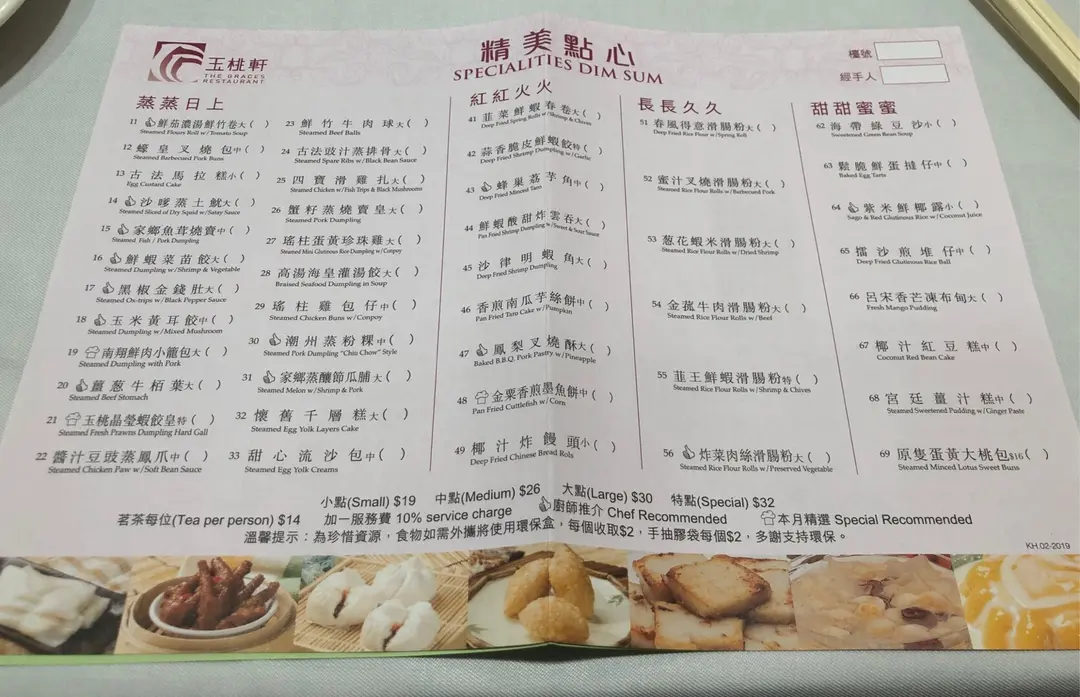 玉桃軒
THE GRACES
RESTAURANT
精美點心
SPECIALITIES DIM SUM
檯號
經手人
蒸蒸日上
11 鮮茄濃湯鮮竹卷大( )
Steamed Flours Roll w/Tomato Soup
12 蠔皇叉燒包中( )
Steamed Barbecued Pork Buns
13 古法馬拉糕小( )
Egg Custard Cake
14 沙嗲蒸土魷大( )
Steamed Sliced of Dry Squid w/Satay Sauce
15 家鄉魚茸燒賣中( )
Steamed Fish / Pork Dumpling
16 鮮蝦菜苗餃大( )
Steamed Dumpling w/Shrimp & Vegetable
17 黑椒金錢肚大( )
Steamed Ox-trips w/Black Pepper Sauce
18 玉米黃耳餃中( )
Steamed Dumpling w/Mixed Mushroom
19 南翔鮮肉小籠包大( )
Steamed Dumpling with Pork
20 薑葱牛栢葉大( )
Steamed Beef Stomach
21 玉桃晶瑩蝦餃皇特( )
Steamed Fresh Prawns Dumpling Hard Gall
22 醬汁豆豉蒸鳳爪中( )
Steamed Chicken Paw w/Soft Bean Sauce
23 鮮竹牛肉球大( )
Steamed Beef Balls
24 古法豉汁蒸排骨大( )
Steamed Spare Ribs w/Black Bean Sauce
25 四寶滑雞扎大( )
Steamed Chicken w/Fish Trips & Black Mushrooms
26 蟹籽蒸燒賣皇大( )
Steamed Pork Dumpling
27 瑤柱蛋黃珍珠雞大( )
Steamed Mini Glutinous Rice Dumpling w/Conpoy
28 高湯海皇灌湯餃大( )
Braised Seafood Dumpling in Soup
29 瑤柱雞包仔中( )
Steamed Chicken Buns w/Conpoy
30 潮州蒸粉粿中( )
Steamed Pork Dumpling "Chiu Chow" Style
31 家鄉蒸釀節瓜脯大( )
Steamed Melon w/Shrimp & Pork
32 懷舊千層糕大( )
Steamed Egg Yolk Layers Cake
33 甜心流沙包中( )
Steamed Egg Yolk Creams
紅紅火火
41 韮菜鮮蝦春卷大( )
Deep Fried Spring Rolls w/Shrimp & Chives
42 蒜香脆皮鮮蝦餃特( )
Deep Fried Shrimp Dumpling w/Garlic
43 蜂巢荔芋角中( )
Deep Fried Minond Taro
44 鮮蝦酸甜炸雲吞大( )
Pan Fried Shrimp Dumpling w/Sweet & Sour Sauce
45 沙律明蝦角大( )
Deep Fried Shrimp Dumpling
46 香煎南瓜芋絲餅中( )
Pan Fried Taro Cake w/Pumpkin
47 鳳梨叉燒酥大( )
Baked B.B.Q. Pork Pastry w/Pineapple
48 金粟香煎墨魚餅中( )
Pan Fried Cuttlefish w/Corn
49 椰汁炸饅頭小( )
Deep Fried Chinese Bread Rols
長長久久
51 春風得意滑腸粉大( )
Deep Fried Rice Flour w/Spring Roll
52 蜜汁叉燒滑腸粉大( )
Steamed Rice Flour Rolls w/Barbecued Pork
53 葱花蝦米滑腸粉大( )
Steamed Rice Flour Rolls w/Dried Shrimp
54 金菰牛肉滑腸粉大( )
Steamed Rice Flour Rolls w/Beef
55 韮王鮮蝦滑腸粉特( )
Steamed Rice Flour Rolls w/Shrimp & Chives
56 炸菜肉絲滑腸粉大( )
Steamed Rice Flour Rolls w/Preserved Vegetable
甜甜蜜蜜
62 海帶綠豆沙小( )
Sweetened Green Bean Soup
63 鬆脆鮮蛋撻仔中( )
Baked Egg Tarts
64 紫米鮮椰露小( )
Sago & Red Glutinous Rice w/Coconut Juice
65 擂沙煎堆仔中( )
Deep Fried Glutinous Rice Ball
66 呂宋香芒凍布甸大( )
Fresh Mango Pudding
67 椰汁紅豆糕中( )
Coconut Red Bean Cake
68 宮廷薑汁糕中( )
Steamed Sweetened Pudding w/Ginger Paste
69 原隻蛋黃大桃包$16( )
Steamed Minced Lotus Sweet Buns
小點(Small) $19 中點(Medium) $26 大點(Large) $30 特點(Special) $32
茗茶每位(Tea per person) $14 加一服務費 10% service charge 廚師推介 Chef Recommended 本月精選 Special Recommended
溫馨提示：為珍惜資源，食物如需外攜將使用環保盒，每個收取$2，手抽膠袋每個$2，多謝支持環保。
KH.02-2019